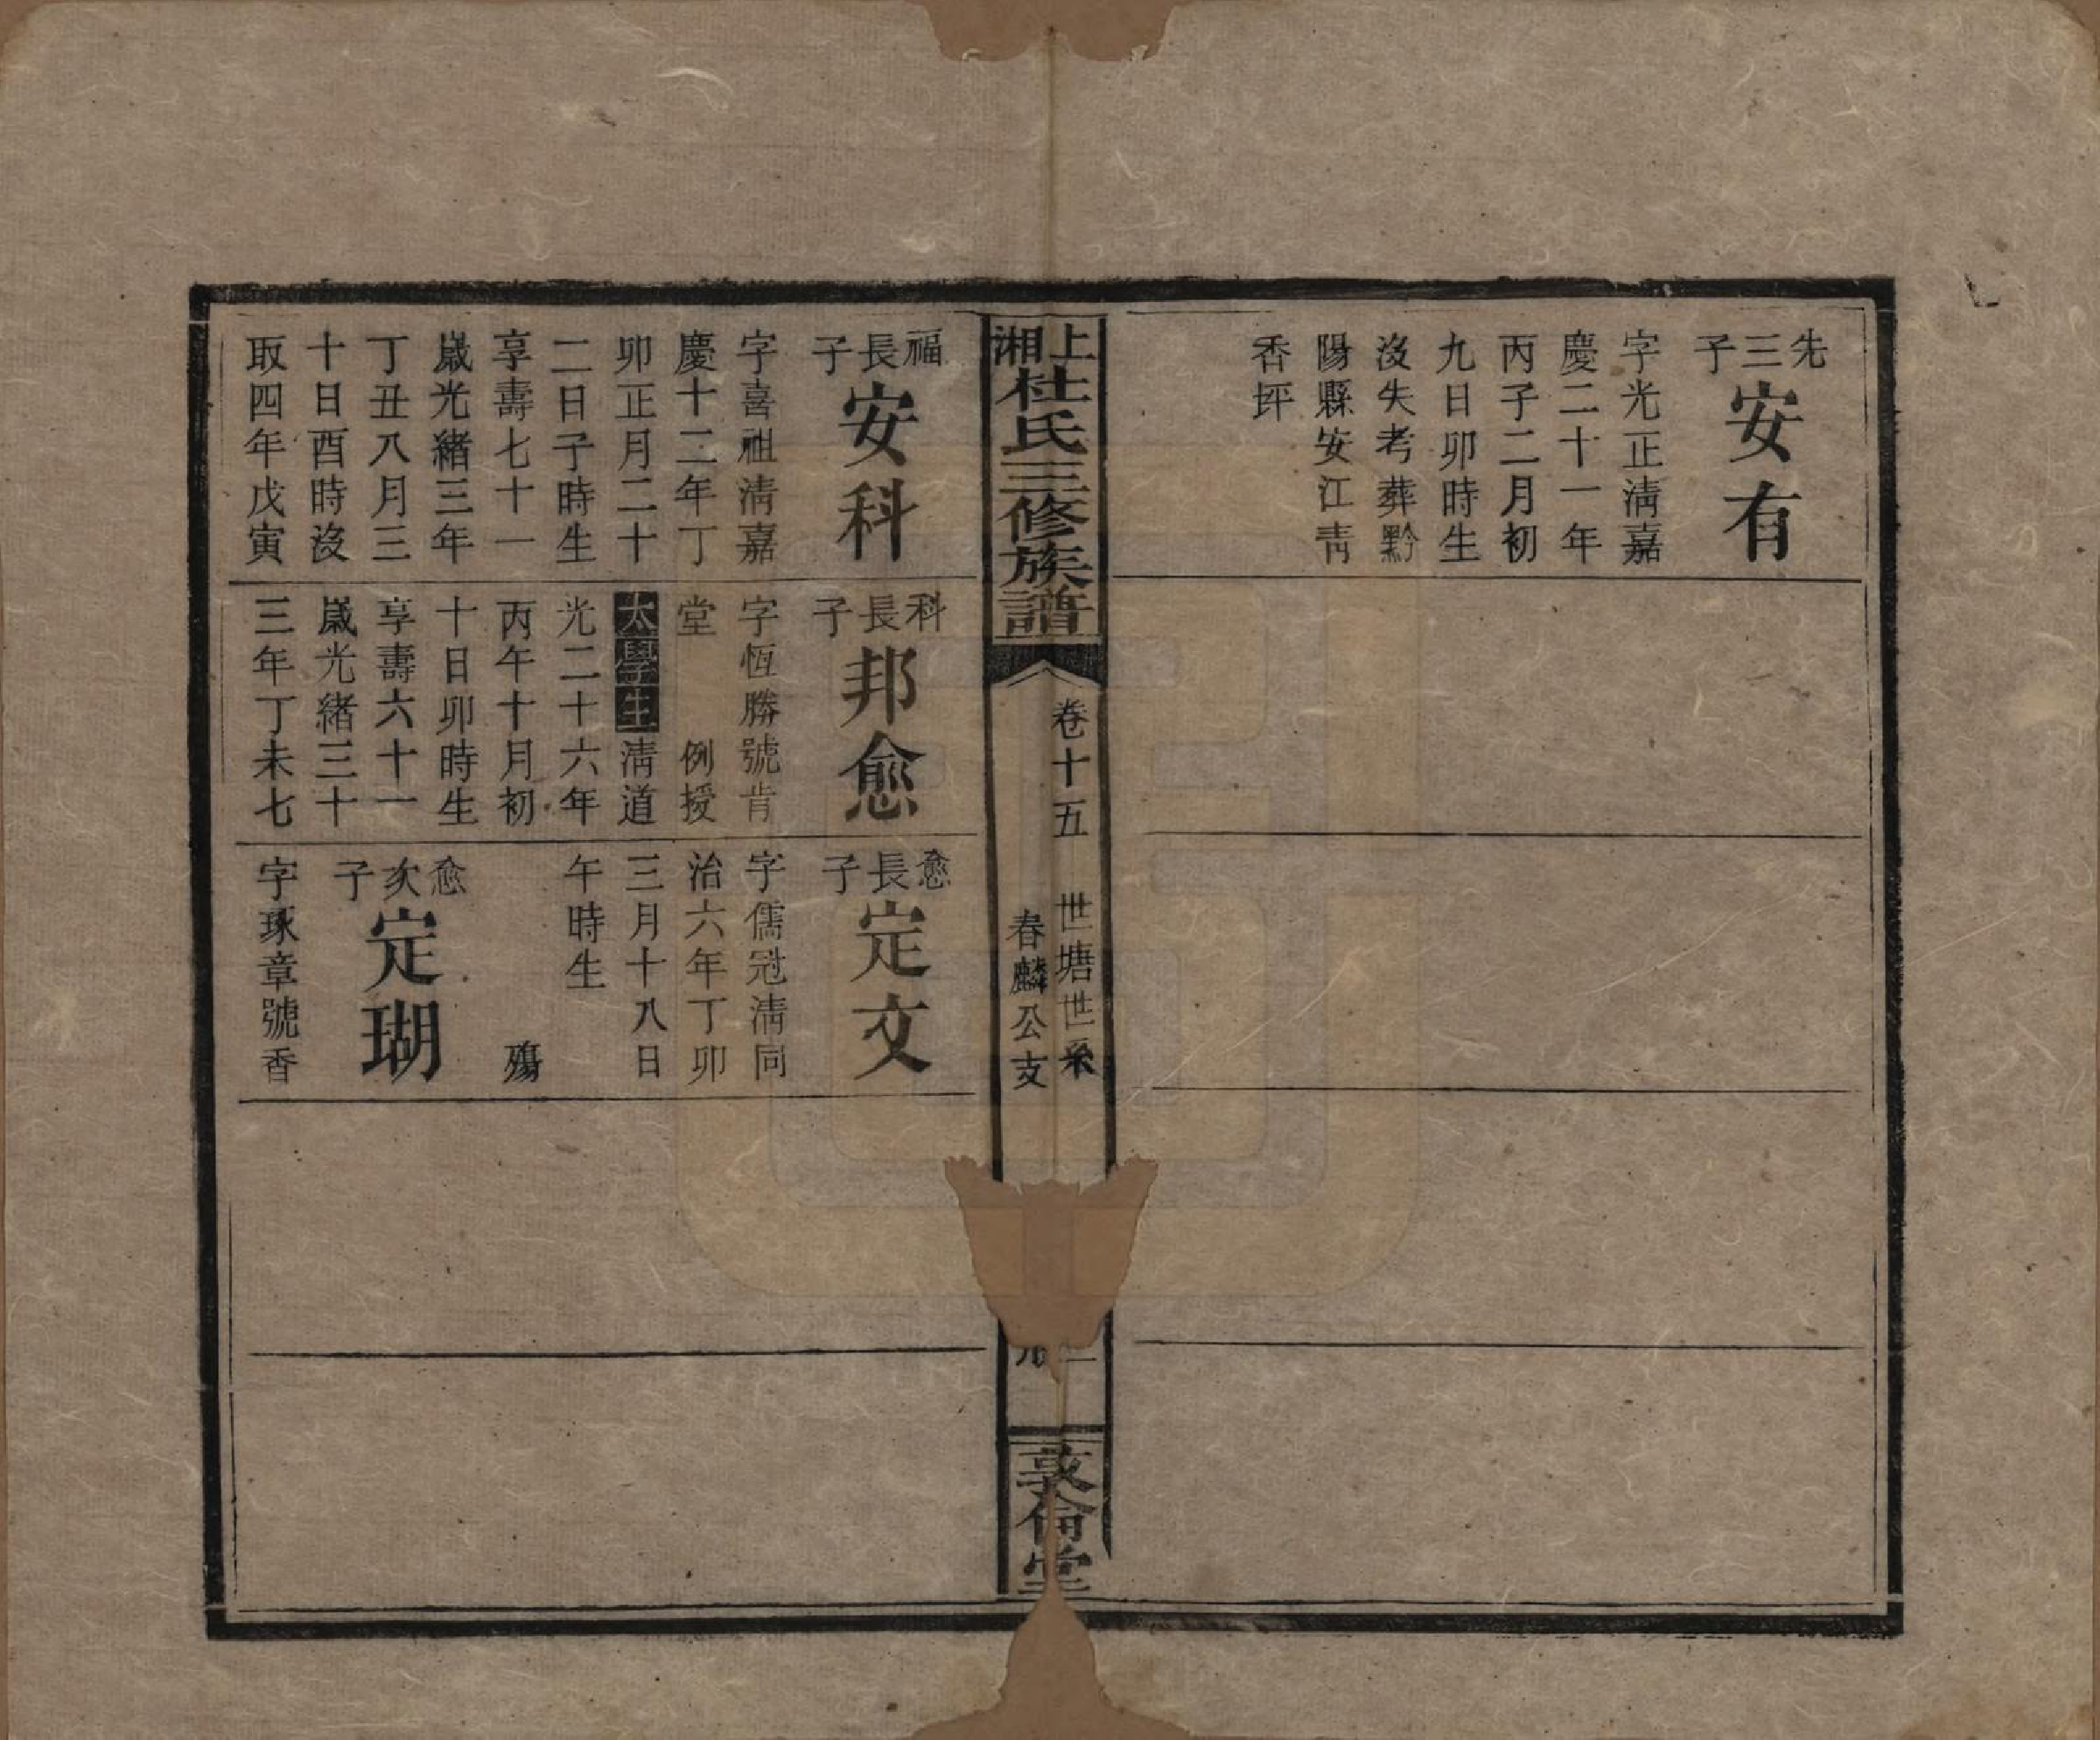 先三子
安有
字光正淸嘉
慶二十一年
丙子二月初
九日卯時生
沒失考葬黔
陽縣安江靑
香坪
上湘杜氏三修族譜
卷十五
世塘世系
春麟公支
敦倫堂
福長子
安科
字喜祖淸嘉
慶十二年丁
卯正月二十
二日子時生
享壽七十一
歲光緒三年
丁丑八月三
十日酉時沒
取四年戊寅
科長子
邦愈
字恆勝號肯
堂 例授
太學生淸道
光二十六年
丙午十月初
十日卯時生
享壽六十一
歲光緒三十
三年丁未七
愈長子
定文
字儒冠淸同
治六年丁卯
三月十八日
午時生
殤
愈次子
定瑚
字琢章號香